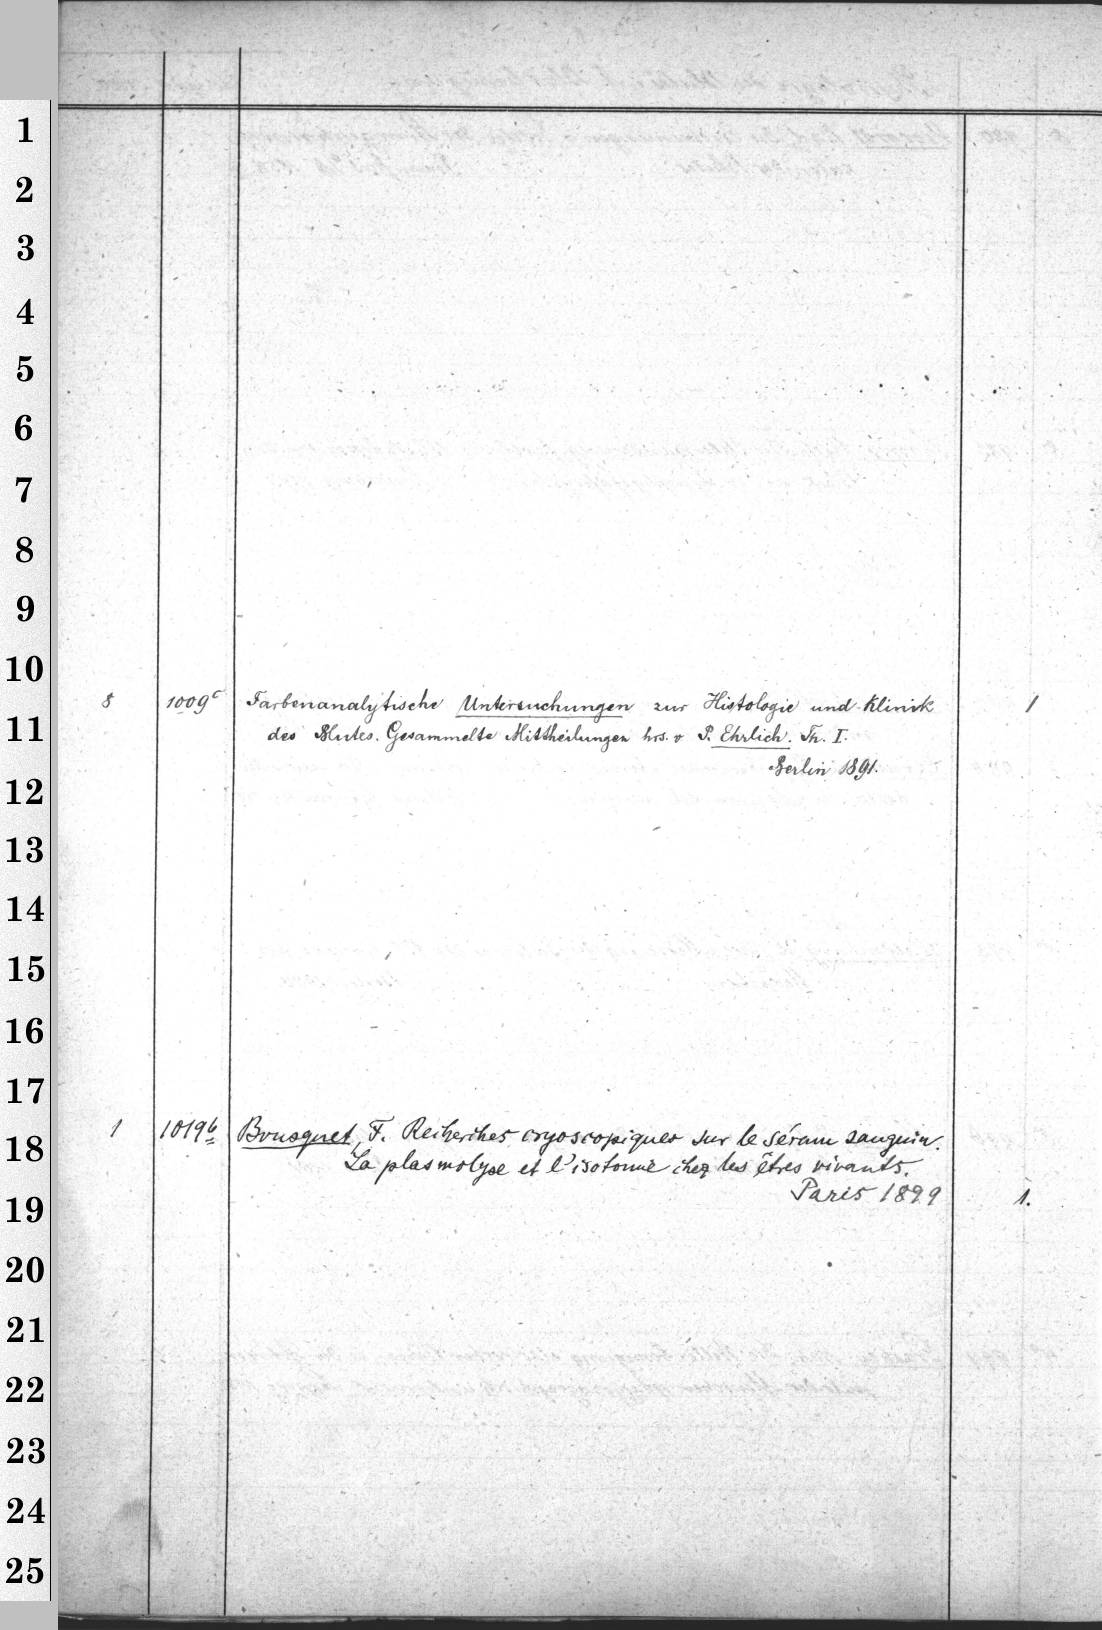 1
2
3
4
5
6
7
8
9
10
11
12
13
14
15
16
17
18
19
20
21
22
23
24
25
8 1009c Farbenanalytische Untersuchungen zur Histologie und Klinik 1
des Blutes. Gesammelte Mittheilungen hrs. v P. Ehrlich. Th. I.
Berlin 1891.
1 1019b Bousquet, F. Recherches cryoscopiques sur le sérum sanguin.
La plasmolyse et l'isotonie chez les êtres vivants.
Paris 1899 1.